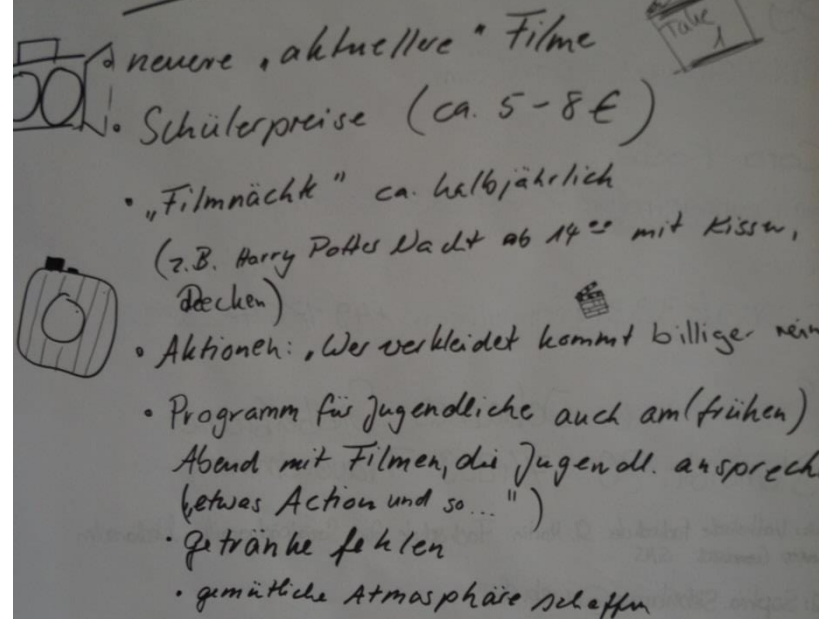 Take
1
• neuere „aktuellere" Filme
• Schülerpreise (ca. 5-8€)
• „Filmnächte" ca. halbjährlich
(z.B. Harry Potter Nacht ab 14⁰⁰ mit Kissen,
Decken)
• Aktionen: „Wer verkleidet kommt billiger rein
• Programm für Jugendliche auch am (frühen)
Abend mit Filmen, die Jugendl. ansprech
(„etwas Action und so...")
• getränke fehlen
• gemütliche Atmosphäre schaffen